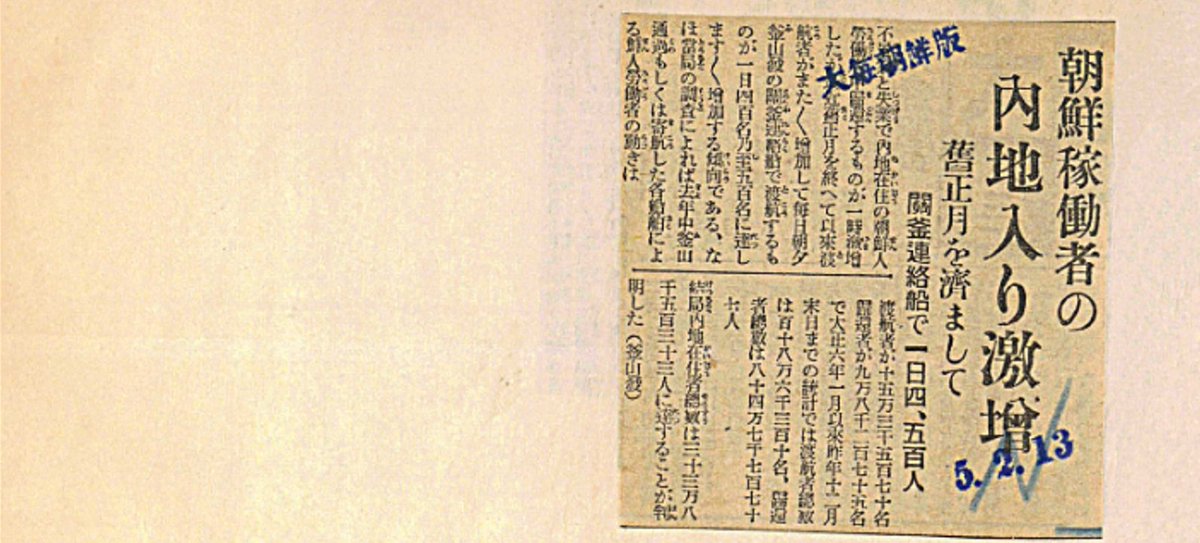 朝鮮稼働者の
內地入り激增
舊正月を濟まして
關釜連絡船で一日四、五百人
大每朝鮮版
不 と失業で內地在住の朝鮮人
勞働 歸還するものが一時激增
したが 舊正月を終へて以來渡
航者がまた〱增加して每日朝夕
釜山發の關釜連絡船で渡航するも
のが一日四百名乃至五百名に達し
ます〱增加する傾向である、な
ほ當局の調査によれば去年中釜山
通過もしくは寄航した各船舶によ
る鮮人勞働者の動きは
渡航者が十五万三千五百七十名
歸還者が九万八千二百七十五名
で大正六年一月以來昨年十二月
末日までの統計では渡航者總數
は百十八万六千三百十名、歸還
者總數は八十四万七千七百七十
七人
結局內地在住者總數は三十三万八
千五百三十三人に達することが判
明した（釜山發）
5. 2. 13